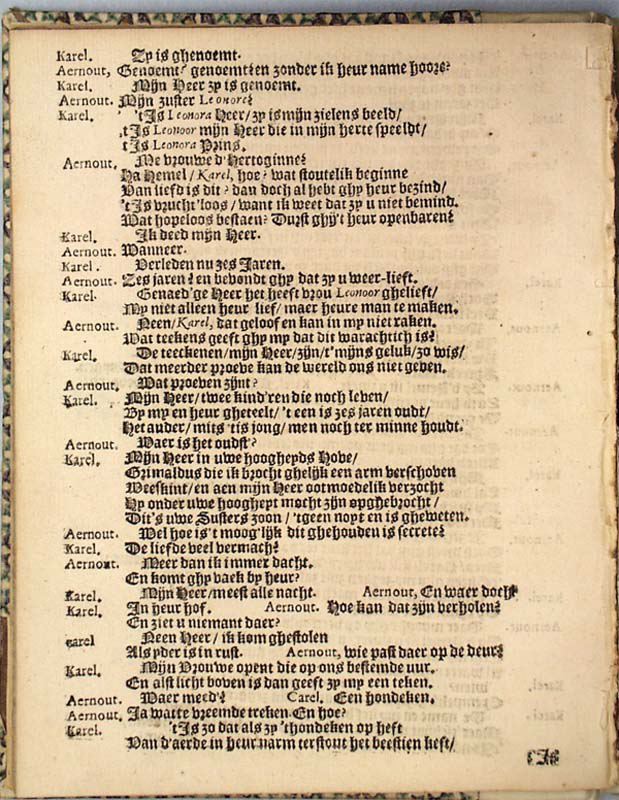 Karel. Zy is ghenoemt.
Aernout, Genoemt? genoemt? en zonder ik heur name hoore?
Karel. Mijn Heer zy is genoemt.
Aernout. Mijn zuster Leonore?
Karel. 't Is Leonora Heer/ zy is mijn zielens beeld/
't Is Leonoor mijn Heer die in mijn herte speeldt/
't Is Leonora Prins.
Aernout, Me vrouwe d'Hertoginne?
Ha Hemel/ Karel, hoe? wat stoutelik beginne
Van liefd is dit? dan doch al hebt ghy heur bezind/
't Is vrucht'loos/ want ik weet dat zy u niet bemind.
Wat hopeloos bestaen? Durst ghy't heur openbaren?
Karel. Ik deed mijn Heer.
Aernout. Wanneer.
Karel. Verleden nu zes Jaren.
Aernout. Zes jaren? en bevondt ghy dat zy u weer-lieft.
Karel. Genaed'ge Heer het heeft vrou Leonoor ghelieft/
My niet alleen heur lief/ maer heure man te maken.
Aernout. Neen/ Karel, dat geloof en kan in my niet raken.
Wat teekens geeft ghy my dat dit warachtich is?
Karel. De teeckenen/ mijn Heer/ zijn/ t'mijns geluk/ zo wis/
Dat meerder proeve kan de wereld ons niet geven.
Aernout. Wat proeven zijnt?
Karel. Mijn Heer/ twee kind'ren die noch leven/
By my en heur gheteelt/ 't een is zes jaren oudt/
Het ander/ mits 'tis jong/ men noch ter minne houdt.
Aernout. Waer is het oudst'?
Karel. Mijn Heer in uwe hoogheyds Hove/
Grimaldus die ik brocht ghelijk een arm verschoven
Weeskint/ en aen mijn Heer ootmoedelik verzocht
Hy onder uwe hooghept mocht zijn opghebrocht/
Dit's uwe Susters zoon/ 'tgeen noyt en is gheweten.
Aernout. Wel hoe is't moog'lijk dit ghehouden is secrete?
Karel. De liefde veel vermach?
Aernout. Meer dan ik immer dacht.
En komt ghy vaek by heur?
Karel. Mijn Heer/ meest alle nacht. Aernout, En waer doch?
Karel. In heur hof. Aernout. Hoe kan dat zijn verholen?
En ziet u niemant daer?
Karel Neen Heer/ ik kom ghestolen
Als yder is in rust. Aernout, wie past daer op de deur?
Karel. Mijn Vrouwe opent die op ons bestemde uur.
En alst licht boven is dan geeft zy my een teken.
Aernout. Waer meed'? Carel. Een hondeken.
Aernout. Ja watte vreemde treken. En hoe?
Karel. 't Is zo dat als zy 'thondeken op heft
Van d'aerde in heur narm terstont het beestien keft/
't Is